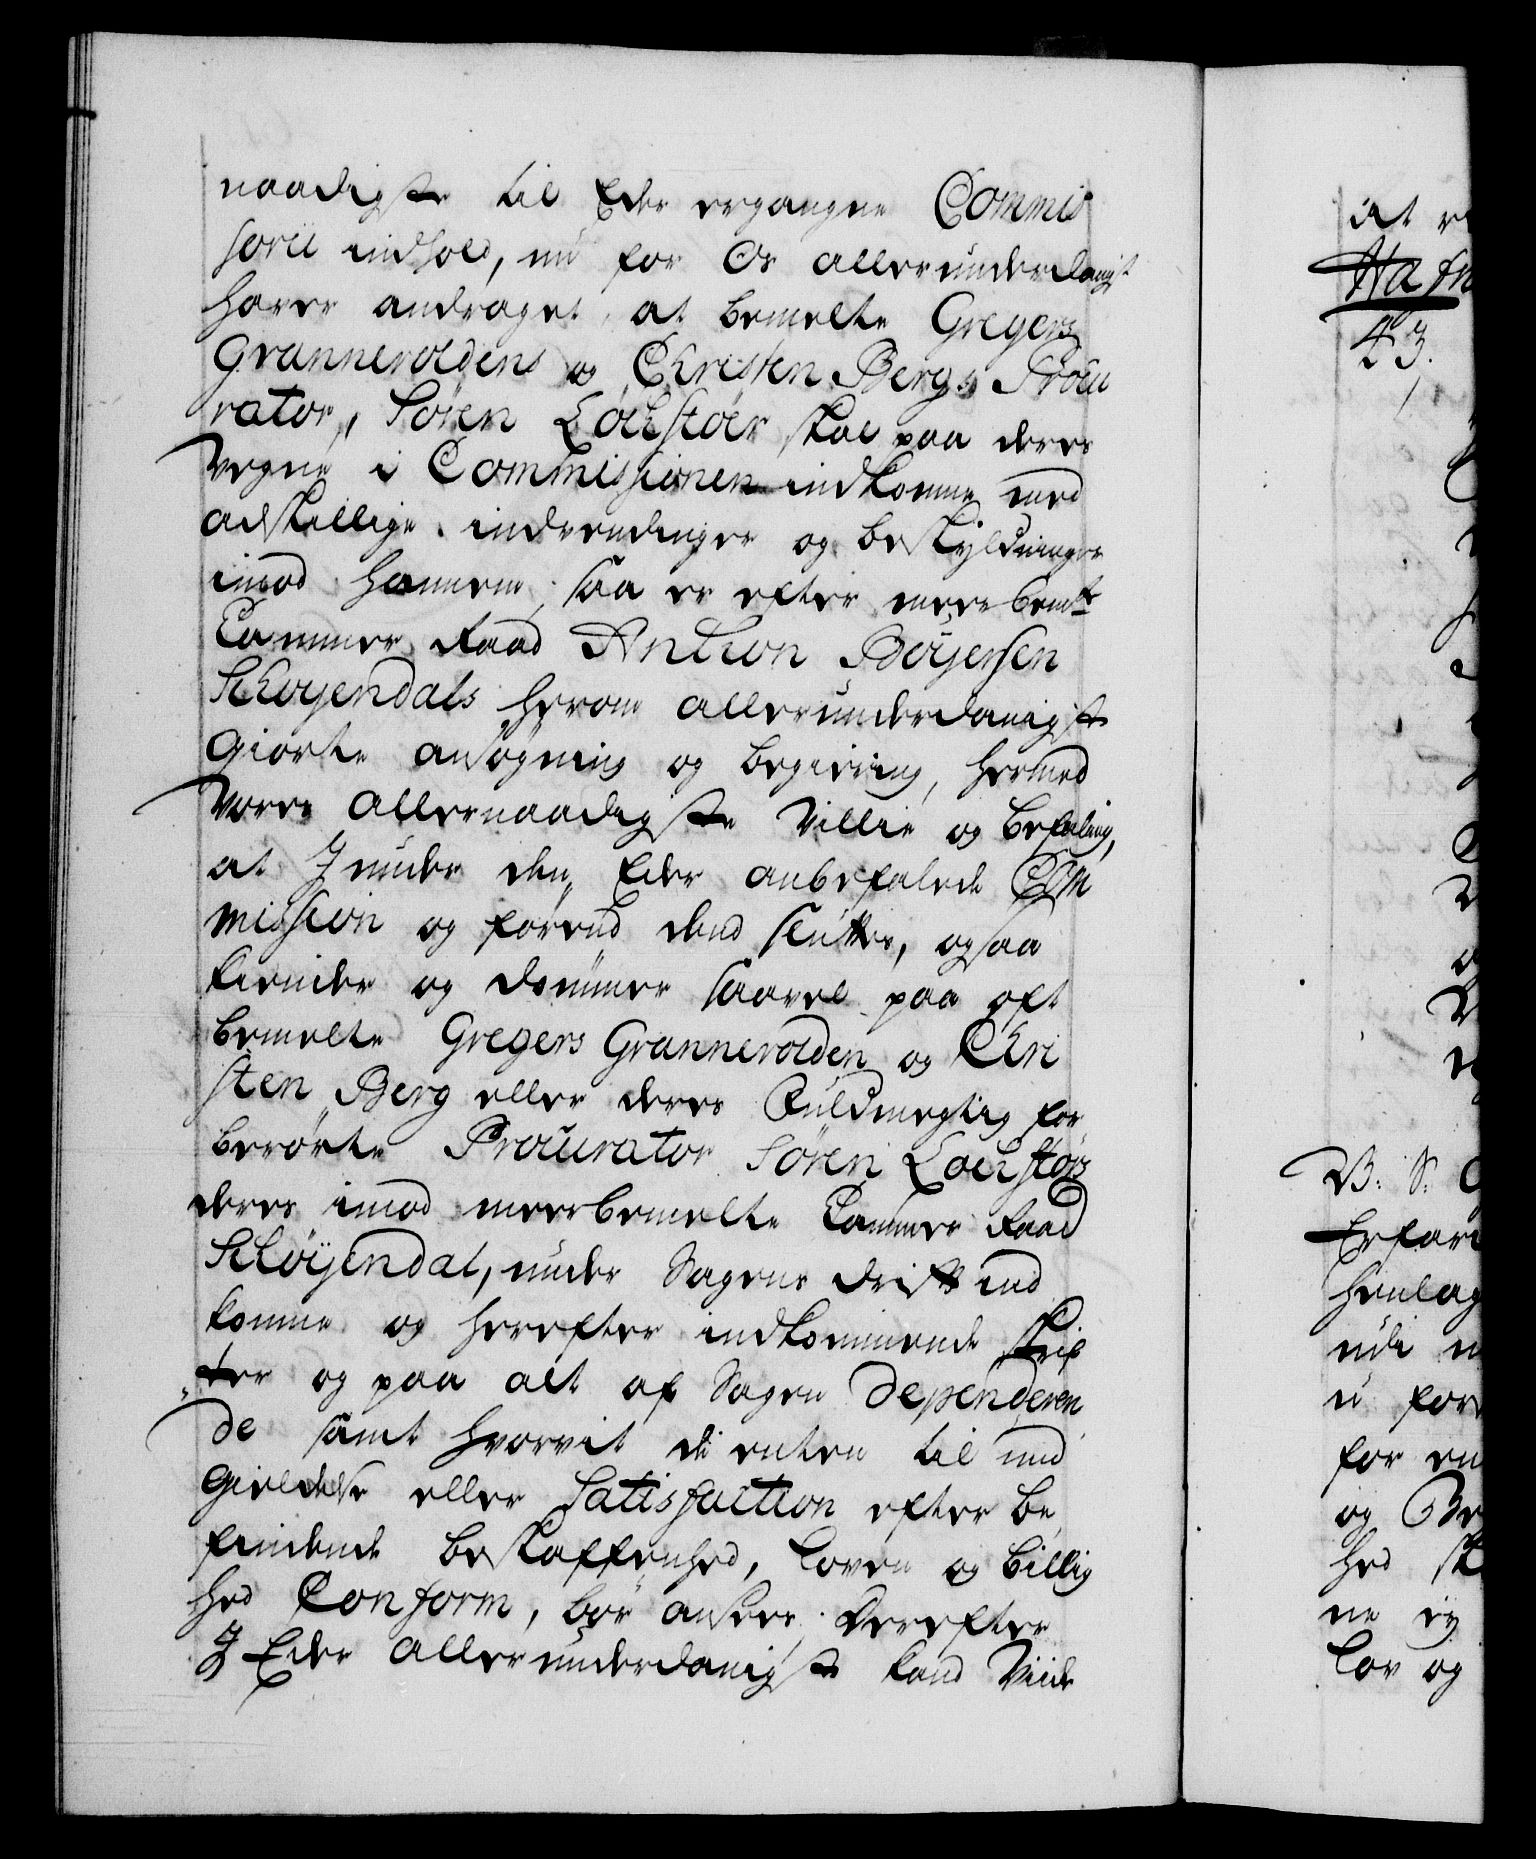 naadigste til Eder ergangne Commis
sorii indhold, nu for Os allerunderdanigst
haver andraget, at bemelte Gregers
Granneroldens og Christen Bergs Procu
rator, Sören Lochstöer skal paa deres
Vegne i Commissionen indkomme med
adskillige indvendinger og beskyldninger
imod hannem, saa er efter meerbemte
Cammer Raad Anthon Böyersen
Sköyendals herom allerunderdanigste
giorte ansögning og begiering, hermed
Vores allernaadigste Villie og befaling,
at I under den Eder anbefalede Com
mission og förend dend sluttes, ogsaa
kiender og dömmer saavel paa oft
bemelte Gregers Grannerolden og Chri
sten Berg eller deres Fuldmegtig for
berörte Procurator Sören Lochstörs
deres imod meerbemelte Cammer Raad
Sklöyendal, under Sagens drift ind
komne og herefter indkommende Skrif
ter og paa alt af Sagen dependeren
de samt hvorvit de enten til und
gieldelse eller Satisfaction efter be
findende beskaffenhed, Loven og billig
hed Conform, bör ansees. Derefter
I Eder allerunderdanigste kand Viide
at
Hafn
43.
B: S:
Erfar
henlag
udi
for
for en
og Be
hed sk
ne ey
Lov og